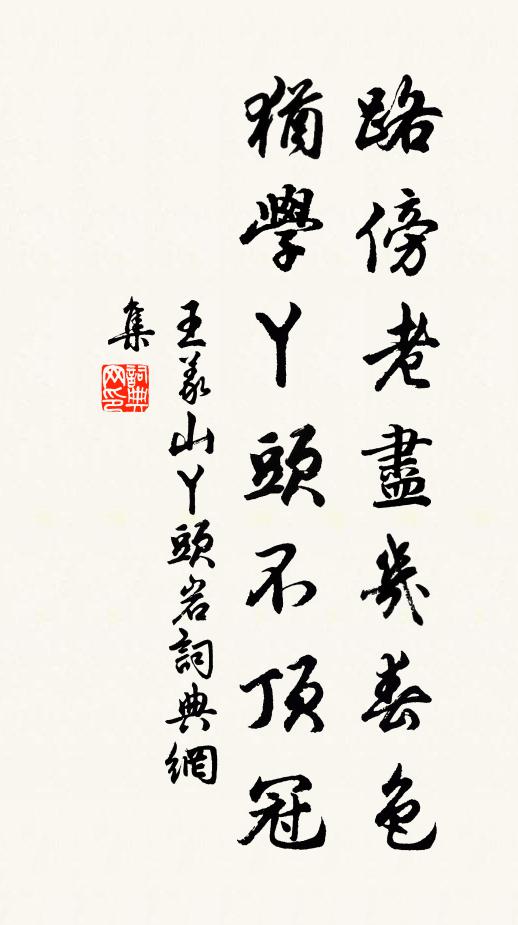 路傍老盡幾春色
猶學丫頭不頂冠
王義山丫頭岩詞典網
集
詞典
网印